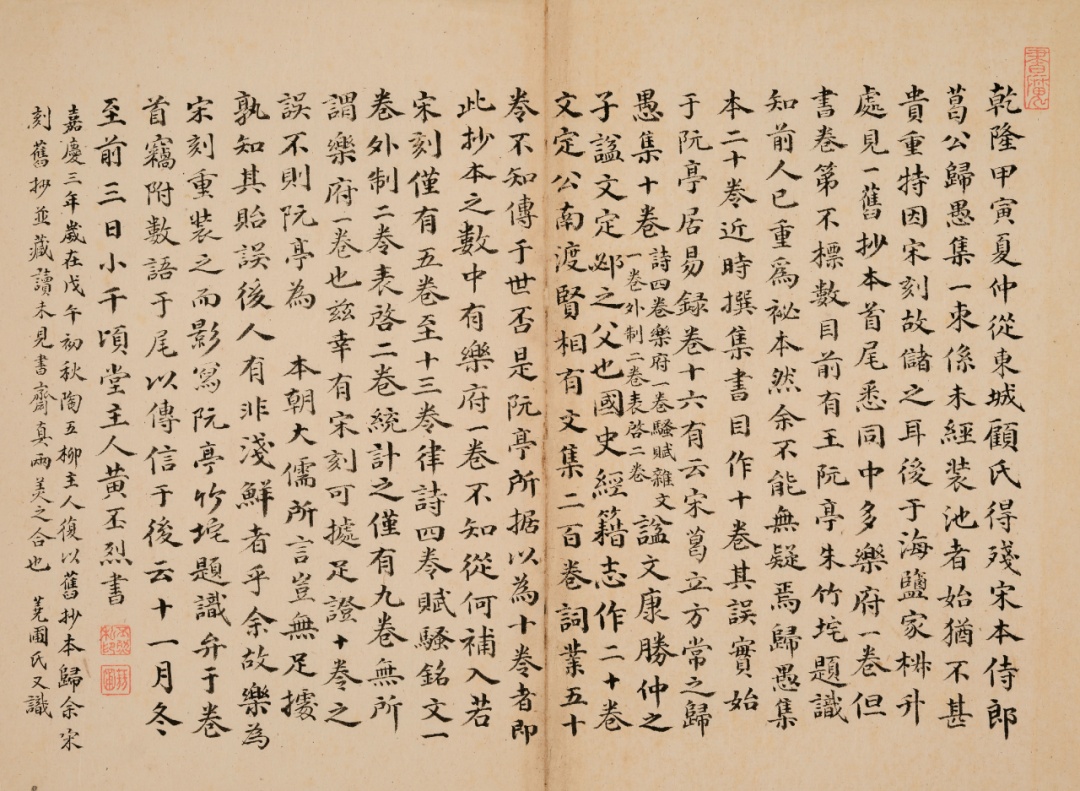 書魔
乾隆甲寅夏仲從東城顧氏得殘宋本侍郎
葛公歸愚集一束係未經裝池者始猶不甚
貴重特因宋刻故儲之耳後于海鹽家椒升
處見一舊抄本首尾悉同中多樂府一卷但
書卷第不標數目前有王阮亭朱竹垞題識
知前人已重爲祕本然余不能無疑焉歸愚集
本二十卷近時撰集書目作十卷其誤實始
于阮亭居易録卷十六有云宋葛立方常之歸
愚集十卷詩四卷樂府一卷騷賦雜文一卷外制二卷表啓二卷謚文康勝仲之
子謚文定邲之父也國史經籍志作二十卷
文定公南渡賢相有文集二百卷詞業五十
卷不知傳于世否是阮亭所据以為十卷者即
此抄本之數中有樂府一卷不知從何補入若
宋刻僅有五卷至十三卷律詩四卷賦騷銘文一
卷外制二卷表啓二卷統計之僅有九卷無所
謂樂府一卷也茲幸有宋刻可據足證十卷之
誤不則阮亭為 本朝大儒所言豈無足據
孰知其貽誤後人有非淺鮮者乎余故樂為
宋刻重裝之而影寫阮亭竹垞題識弁于卷
首竊附數語于尾以傳信于後云十一月冬
至前三日小千頃堂主人黃丕烈書
丕烈私印
蕘圃
嘉慶三年歲在戊午初秋陶五柳主人復以舊抄本歸余宋
刻舊抄並藏讀未見書齋真兩美之合也 蕘圃氏又識